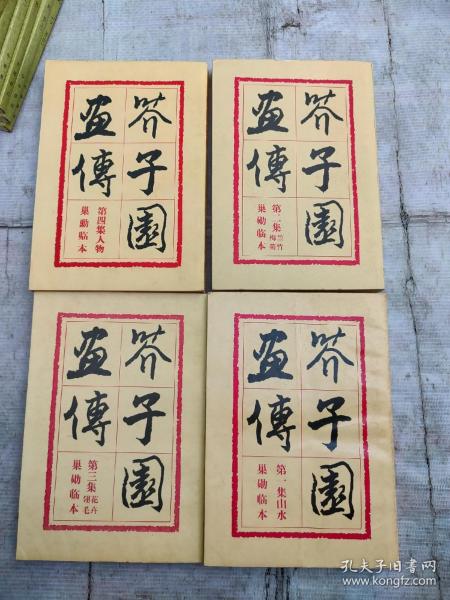 芥子園
畫傳
第四集人物
巢勳臨本
芥子園
畫傳
第二集
兰竹
梅菊
巢勋临本
芥子園
畫傳
第三集
花卉
翎毛
巢勋临本
芥子園
畫傳
第一集山水
巢勋临本
孔夫子旧书网
www.kongfz.com